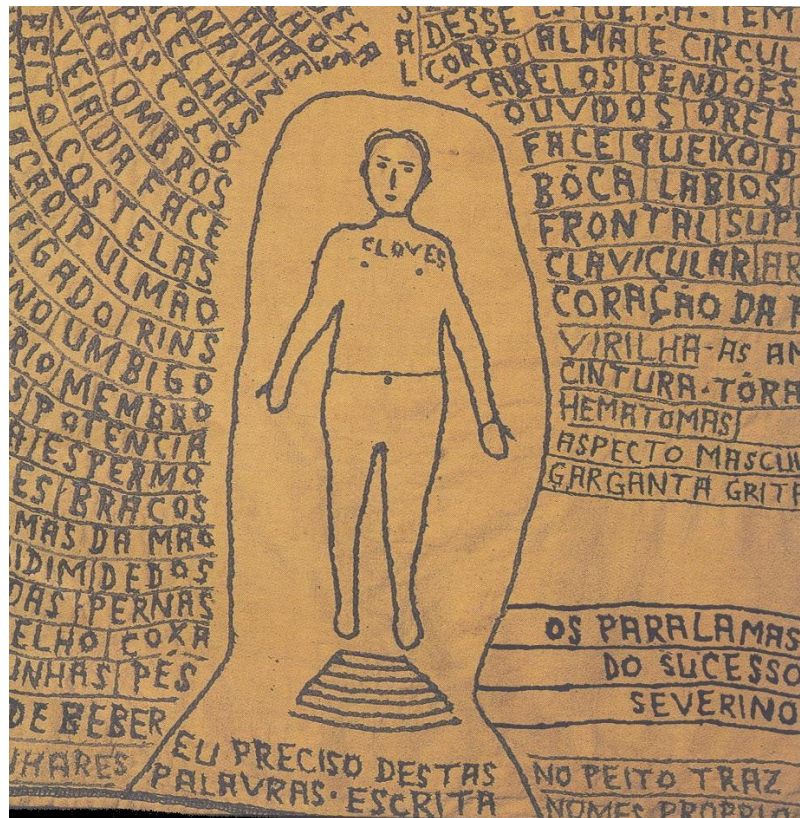 EÇA
LHOS
ANAS
NARIZ
CELHAS
PESCOÇO
NCO OMBROS
VEIA DA FACE
EITO COSTELAS
AÇÃO PULMÃO
FIGADO RINS
NO UMBIGO
RIO MEMBRO
S POTENCIA
A ESPERMO
ES BRACOS
MAS DA MÃO
IDIM DEDOS
DAS PERNAS
ELHO COXA
INHAS PÉS
DE BEBER
LHARES
SAL
CLOVES
EU PRECISO DESTAS
PALAVRAS · ESCRITA
DESSE TEM
CORPO ALMA E CIRCUL
CABELOS PENDÕES
OUVIDOS ORELH
FACE QUEIXO D
BÔCA LABIOS
FRONTAL SUP
CLAVICULAR AR
CORAÇÃO DA
VIRILHA-AS AN
CINTURA · TÓRA
HEMATOMAS
ASPECTO MASCUL
GARGANTA GRITA
OS PARALAMAS
DO SUCESSO
SEVERINO
NO PEITO TRAZ
NOMES PROPRIO